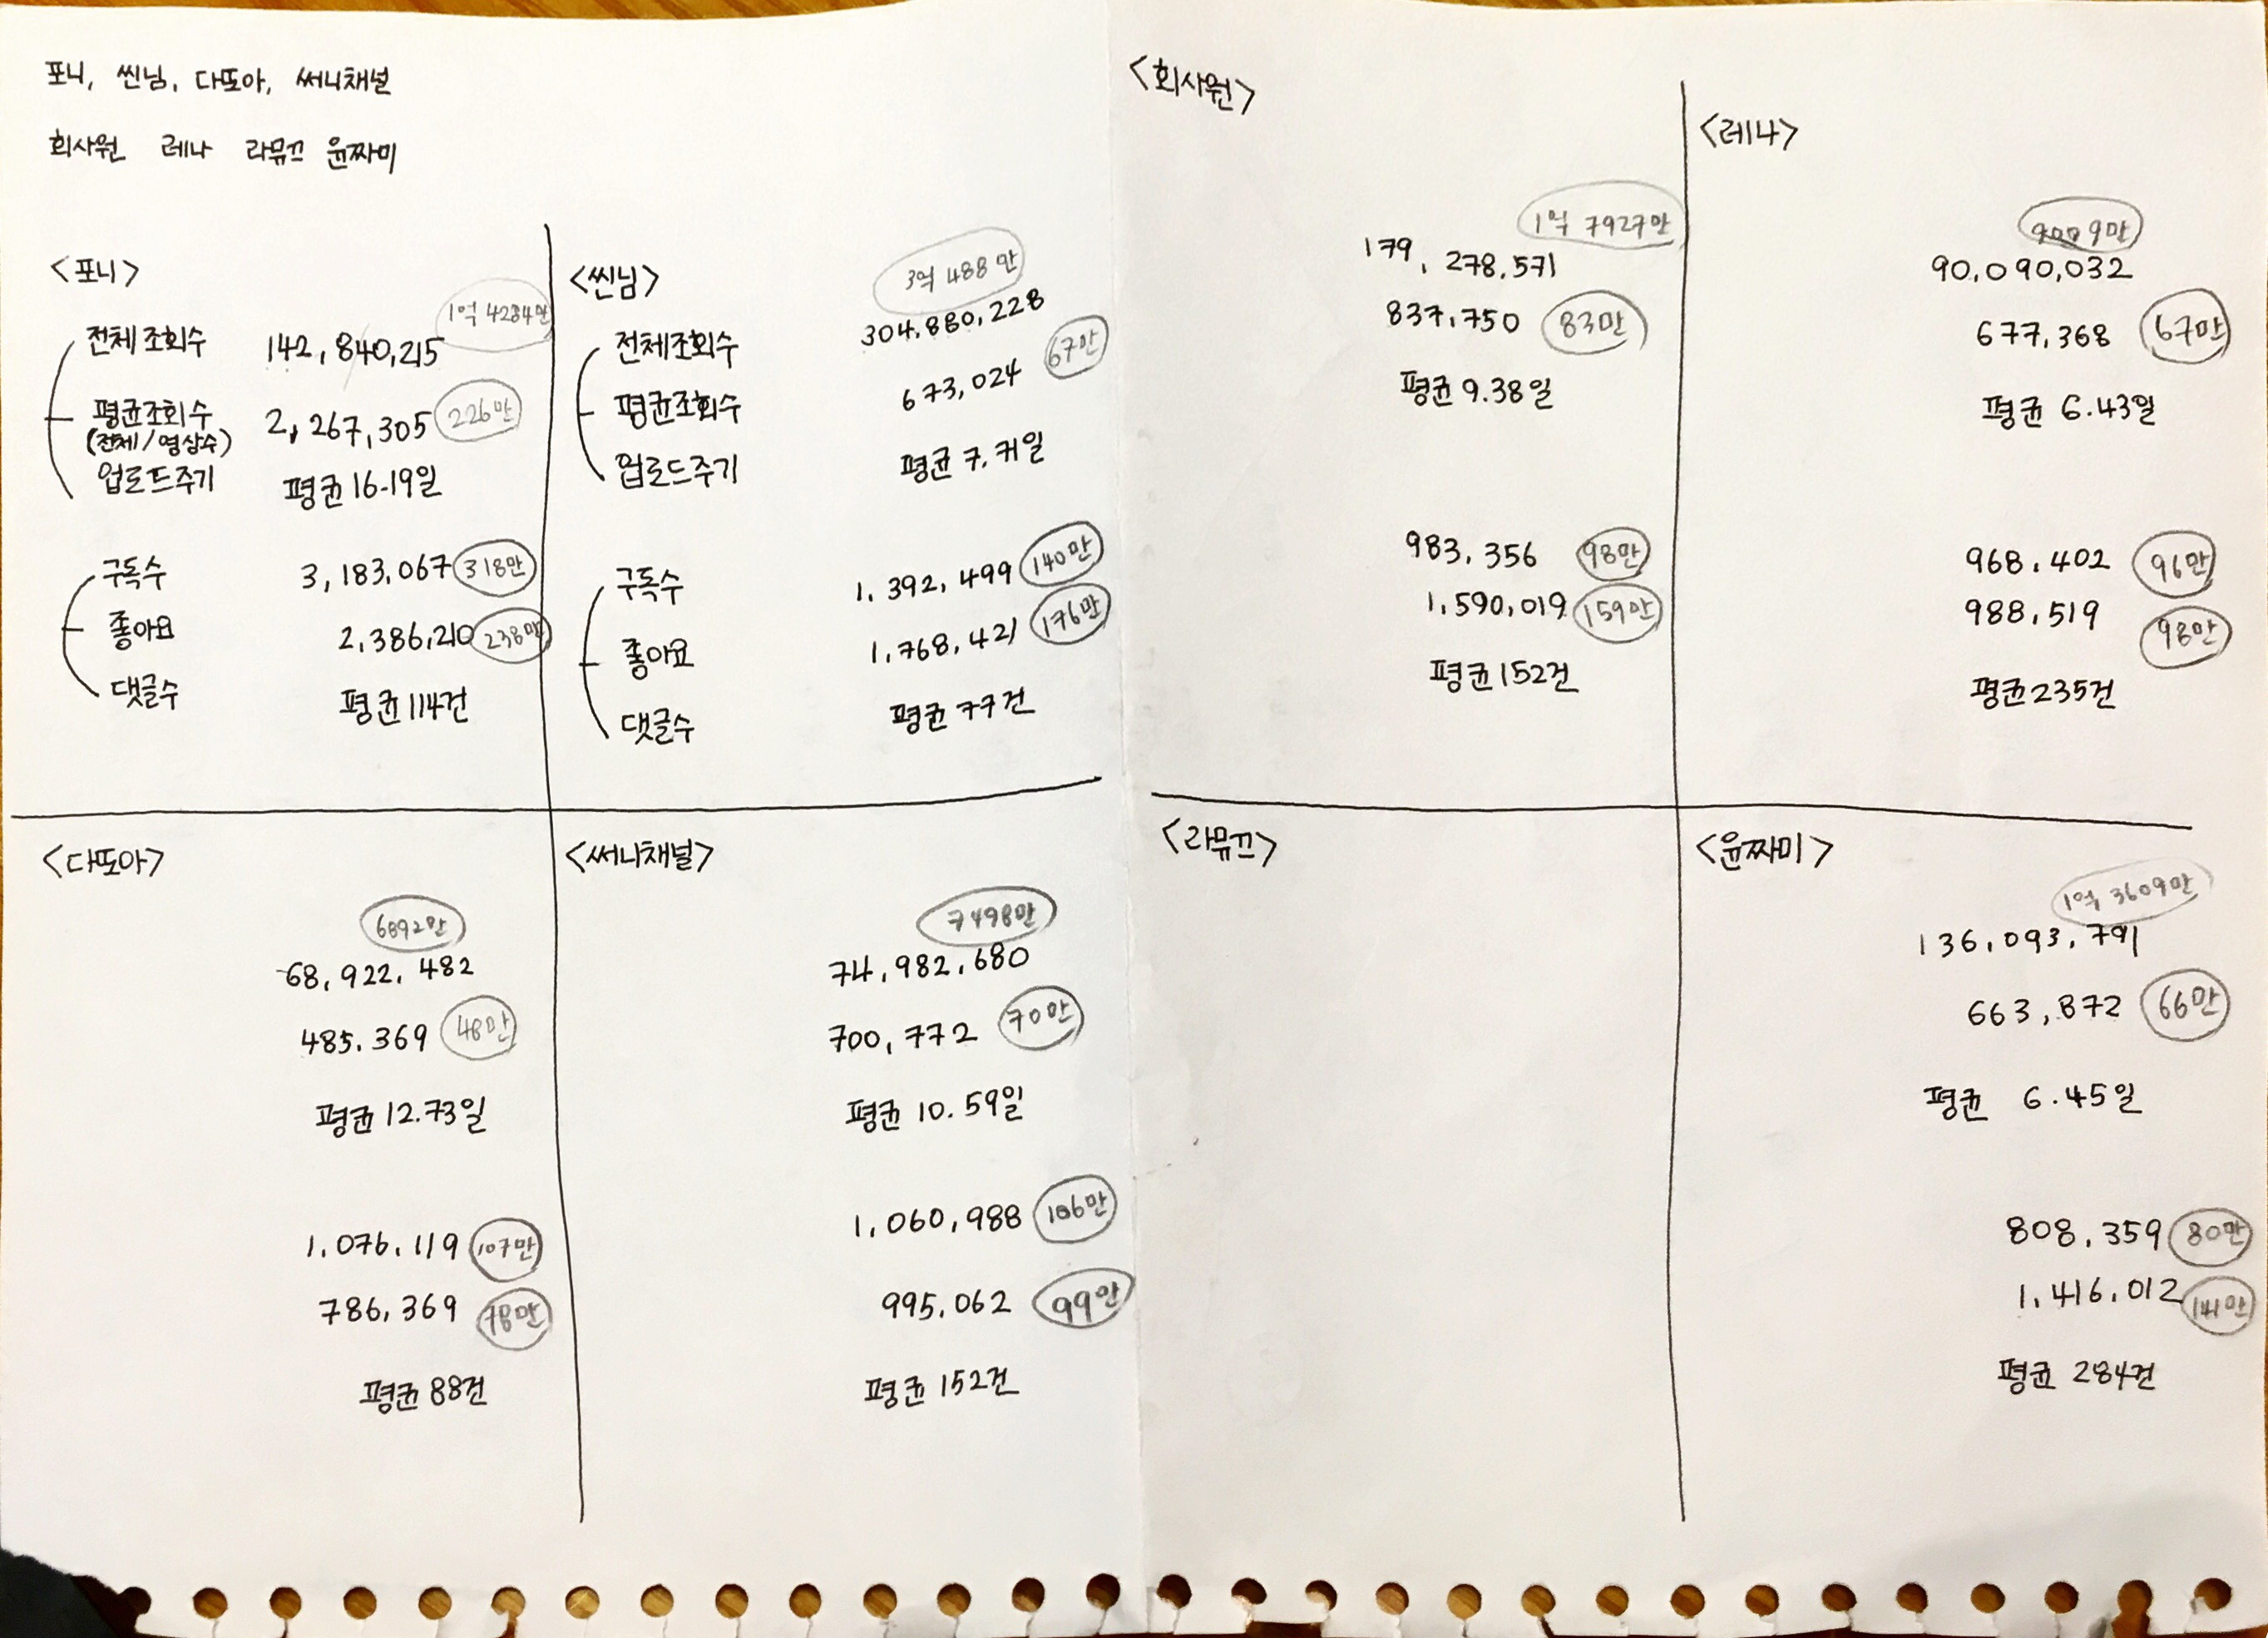 포니, 씬님, 다또아, 써니채널
회사원 레나 라뮤끄 윤짜미
<포니>
1억 4284만
전체조회수 142,840,215
평균조회수 2,267,305 226만
(전체/영상수)
업로드주기 평균 16-19일
구독수 3,183,067 318만
좋아요 2,386,210 238만
댓글수 평균 114건
<씬님>
3억 488만
전체조회수 304,880,228
평균조회수 673,024 67만
업로드주기 평균 7.71일
구독수 1,392,499 140만
좋아요 1,768,421 176만
댓글수 평균 77건
<다또아>
6892만
68,922,482
485,369 48만
평균 12.73일
1,076,119 107만
786,369 78만
평균 88건
<써니채널>
7498만
74,982,680
700,772 70만
평균 10.59일
1,060,988 106만
995,062 99만
평균 152건
<회사원>
1억 7927만
179,278,571
837,750 83만
평균 9.38일
983,356 98만
1,590,019 159만
평균 152건
<레나>
9009만
90,090,032
677,368 67만
평균 6.43일
968,402 96만
988,519 98만
평균 235건
<라뮤끄>
<윤짜미>
1억 3609만
136,093,791
663,872 66만
평균 6.45일
808,359 80만
1,416,012 141만
평균 284건